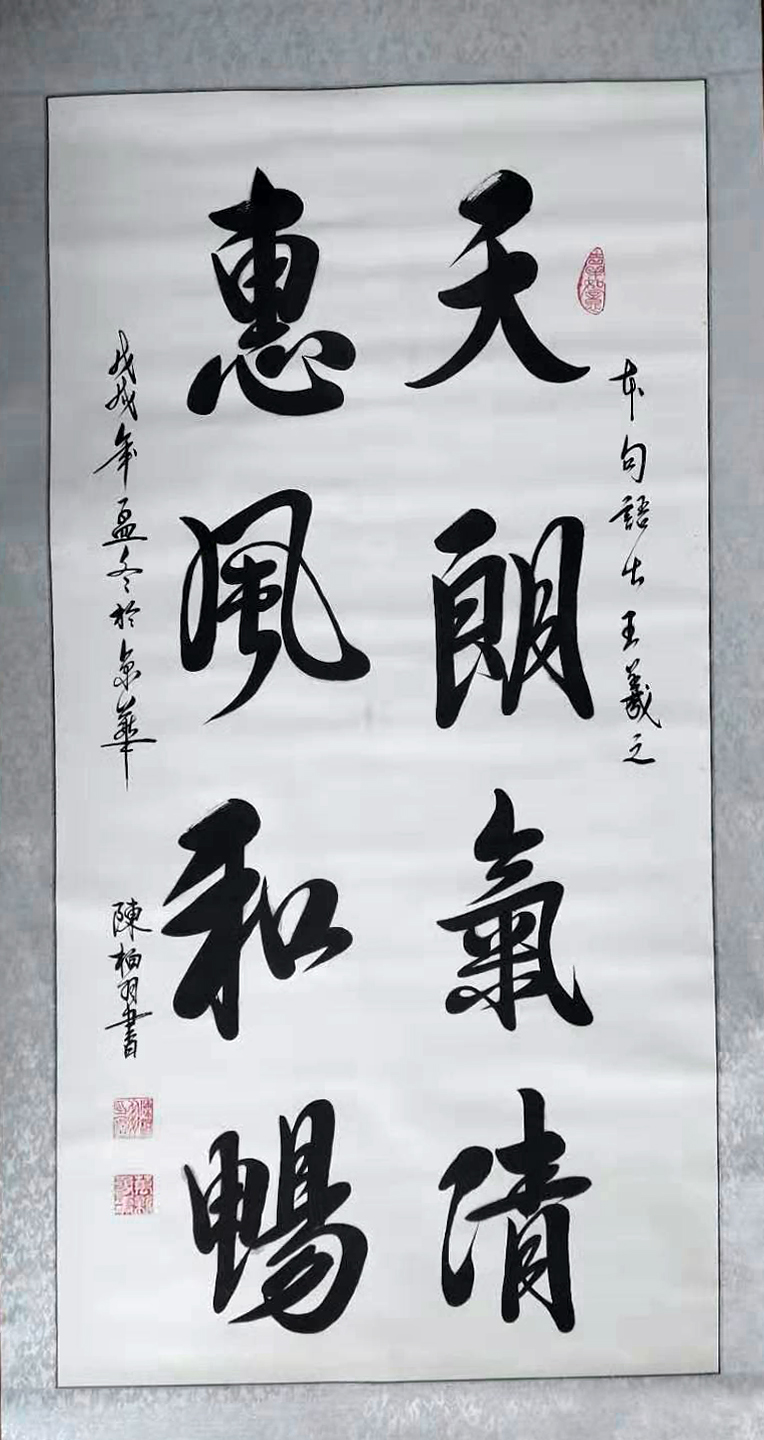 本句語出王羲之
天朗氣清
惠風和暢
戊戌年孟冬於京華
陳栢羽書